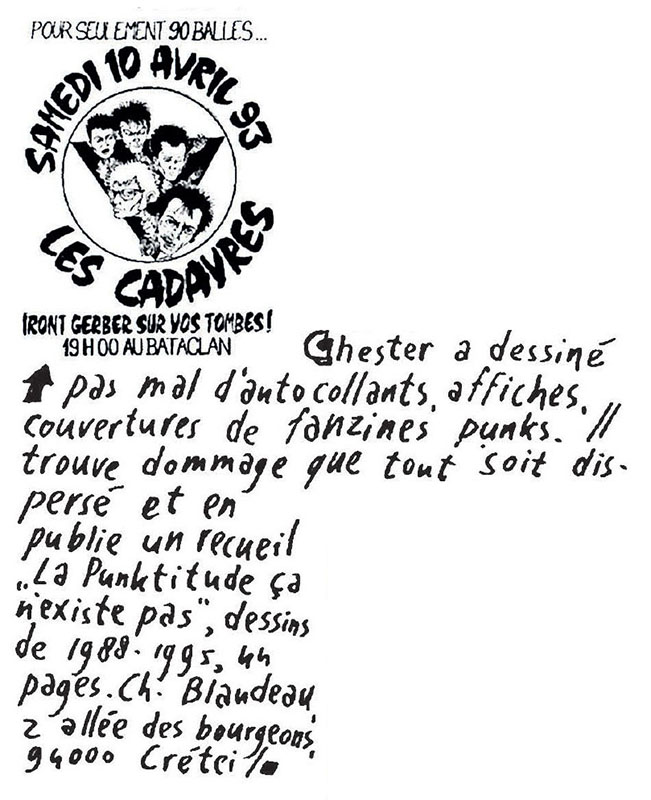 POUR SEULEMENT 90 BALLES...
SAMEDI 10 AVRIL 93
LES CADAVRES
IRONT GERBER SUR VOS TOMBES!
19H00 AU BATACLAN
Chester a dessiné
pas mal d'autocollants, affiches,
couvertures de fanzines punks. Il
trouve dommage que tout soit dis-
persé et en
publie un recueil
„La Punktitude ça
n'existe pas", dessins
de 1988-1995, 44
pages. Ch. Blaudeau,
2 allée des bourgeons,
94000 Créteil